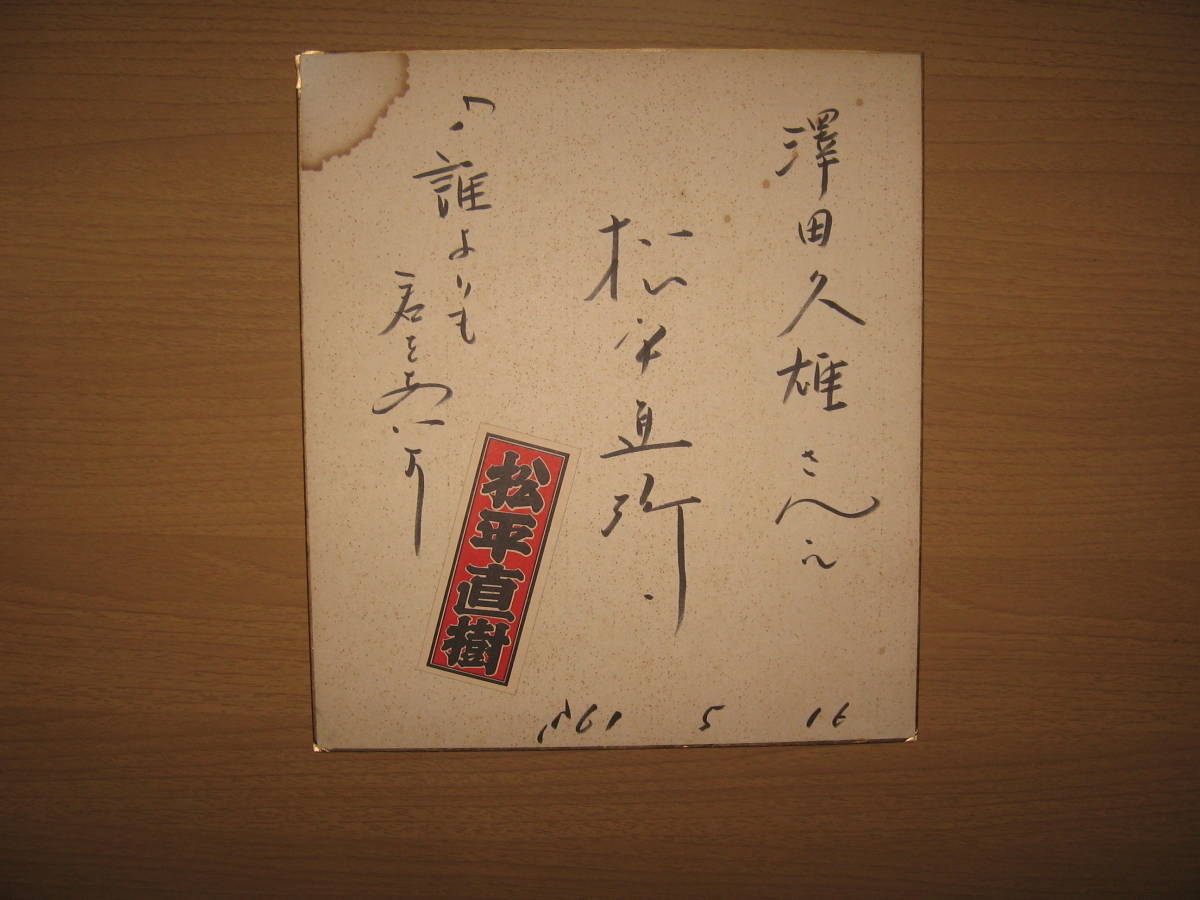 澤田久雄さんへ
松平直樹
「誰よりも
君をあいす」
松平直樹
S61 5 16